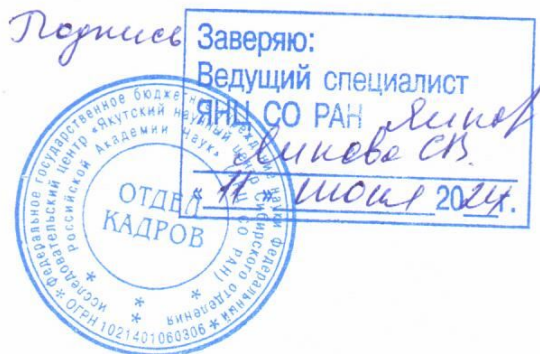 Подпись
Заверяю:
Ведущий специалист
ЯНЦ СО РАН
С.В.
« 11 » 2024г.
Федеральное государственное бюджетное учреждение науки Федеральный
исследовательский центр «Якутский научный центр Сибирского отделения
Российской Академии Наук» (ЯНЦ СО РАН)
* ОГРН 1021401060306 *
ОТДЕЛ
КАДРОВ